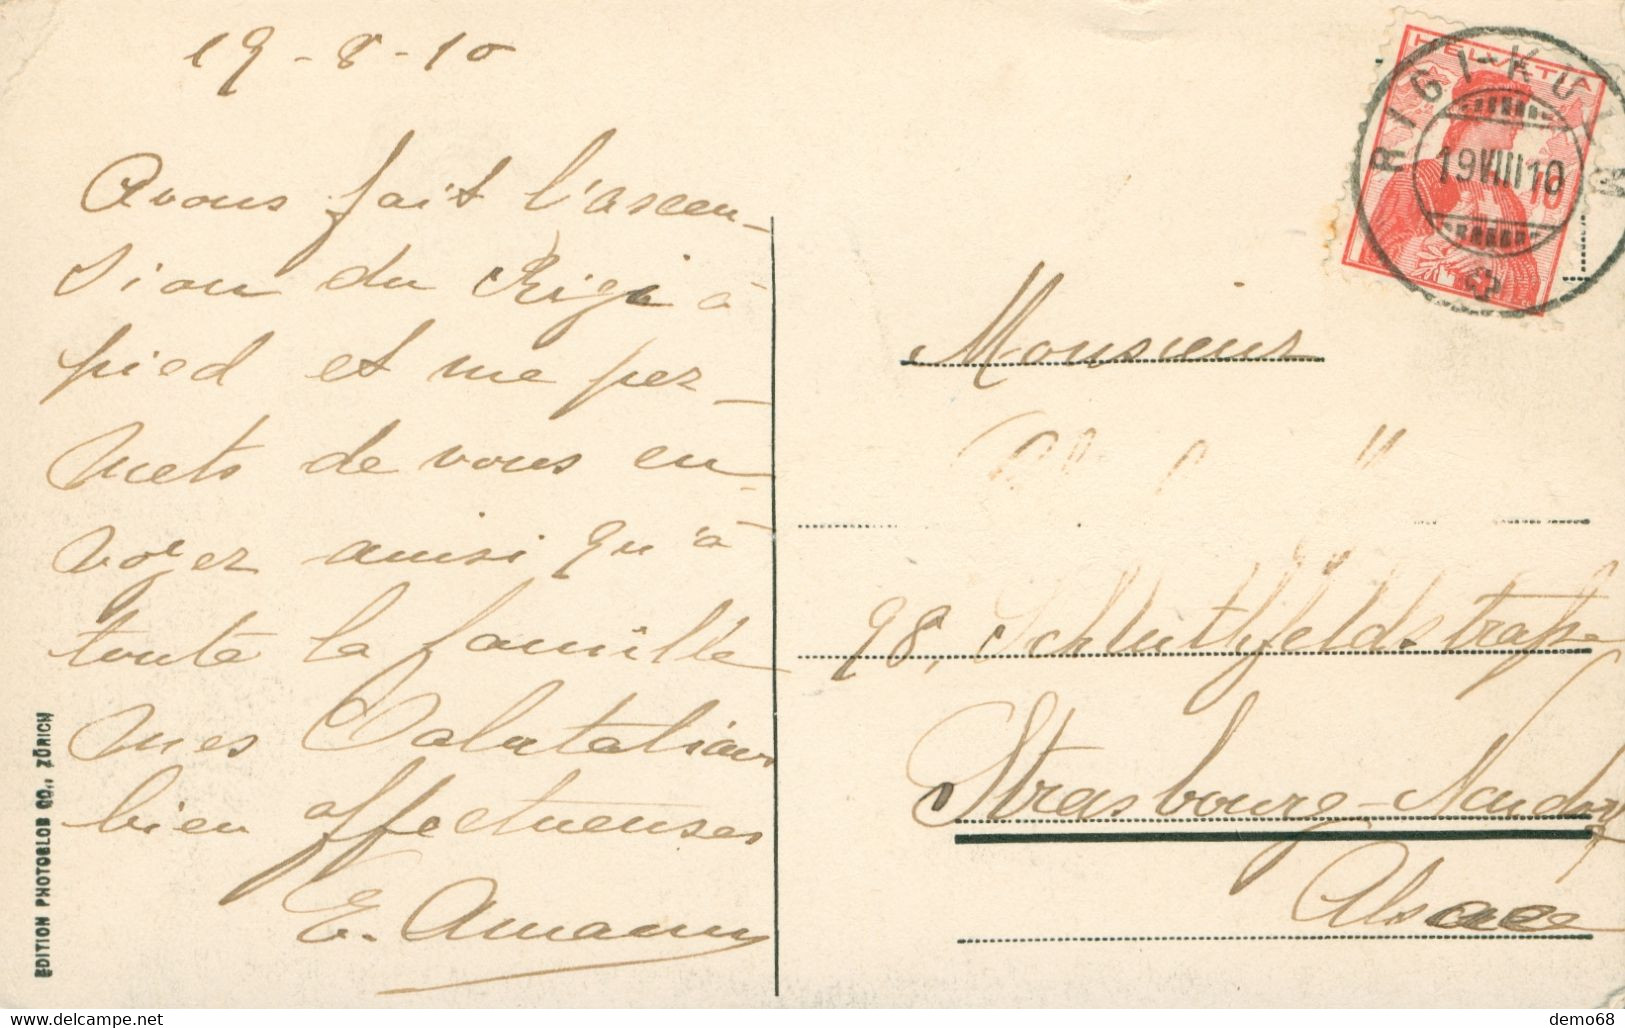 19-8-10
Avons fait l'ascen-
sion du Rigi à
pied et me per-
mets de vous en-
voyer ainsi qu'à
toute la famille
mes Salutations
bien affectueuses
E. Amann
EDITION PHOTOGLOB CO., ZÜRICH
HELVETIA
RIGI-KULM
19 VIII 10
10
Monsieur
98, Schluthfeldstraße
Strasbourg-Neudorf
Alsace
demo68